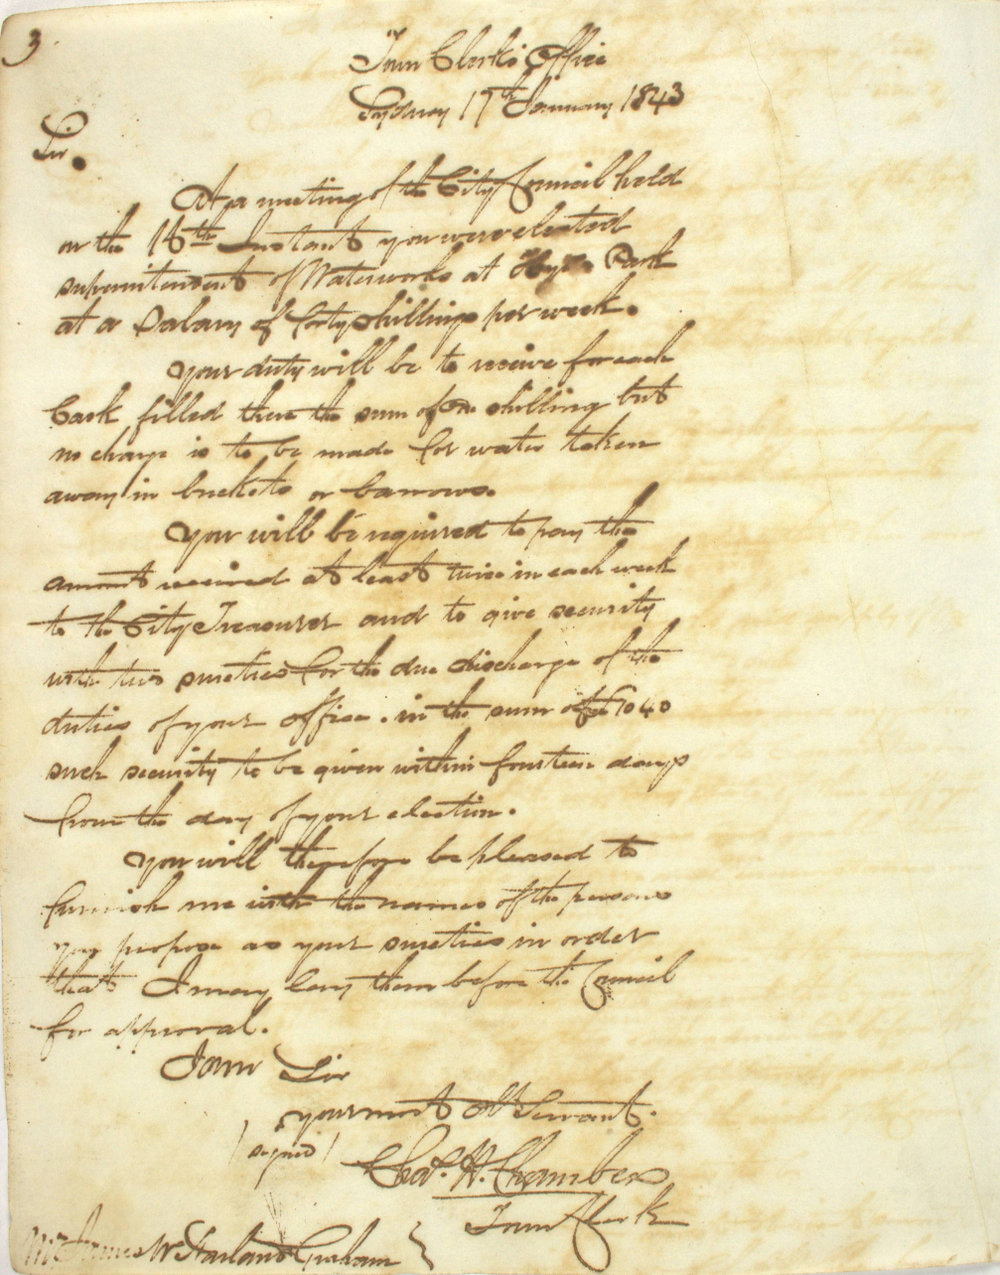 3
Town Clerk's Office
Sydney 17th January 1843
Sir.
At a meeting of the City Council held
on the 16th Instant you were elected
superintendent of Waterworks at Hyde Park
at a Salary of forty shillings per week.
Your duty will be to receive for each
Cask filled there the sum of one shilling but
no charge is to be made for water taken
away in buckets or barrows.
You will be required to pay the
amount received at least twice in each week
to the City Treasurer and to give security
with two sureties for the due discharge of the
duties of your office. in the sum of £40
such security to be given within fourteen days
from the day of your election.
You will therefore be pleased to
furnish me with the names of the persons
you propose as your sureties in order
that I may lay them before the Council
for approval.
I am Sir
your most obt Servant.
(signed) Chas. H. Chambers
Town Clerk
Mr James Graham